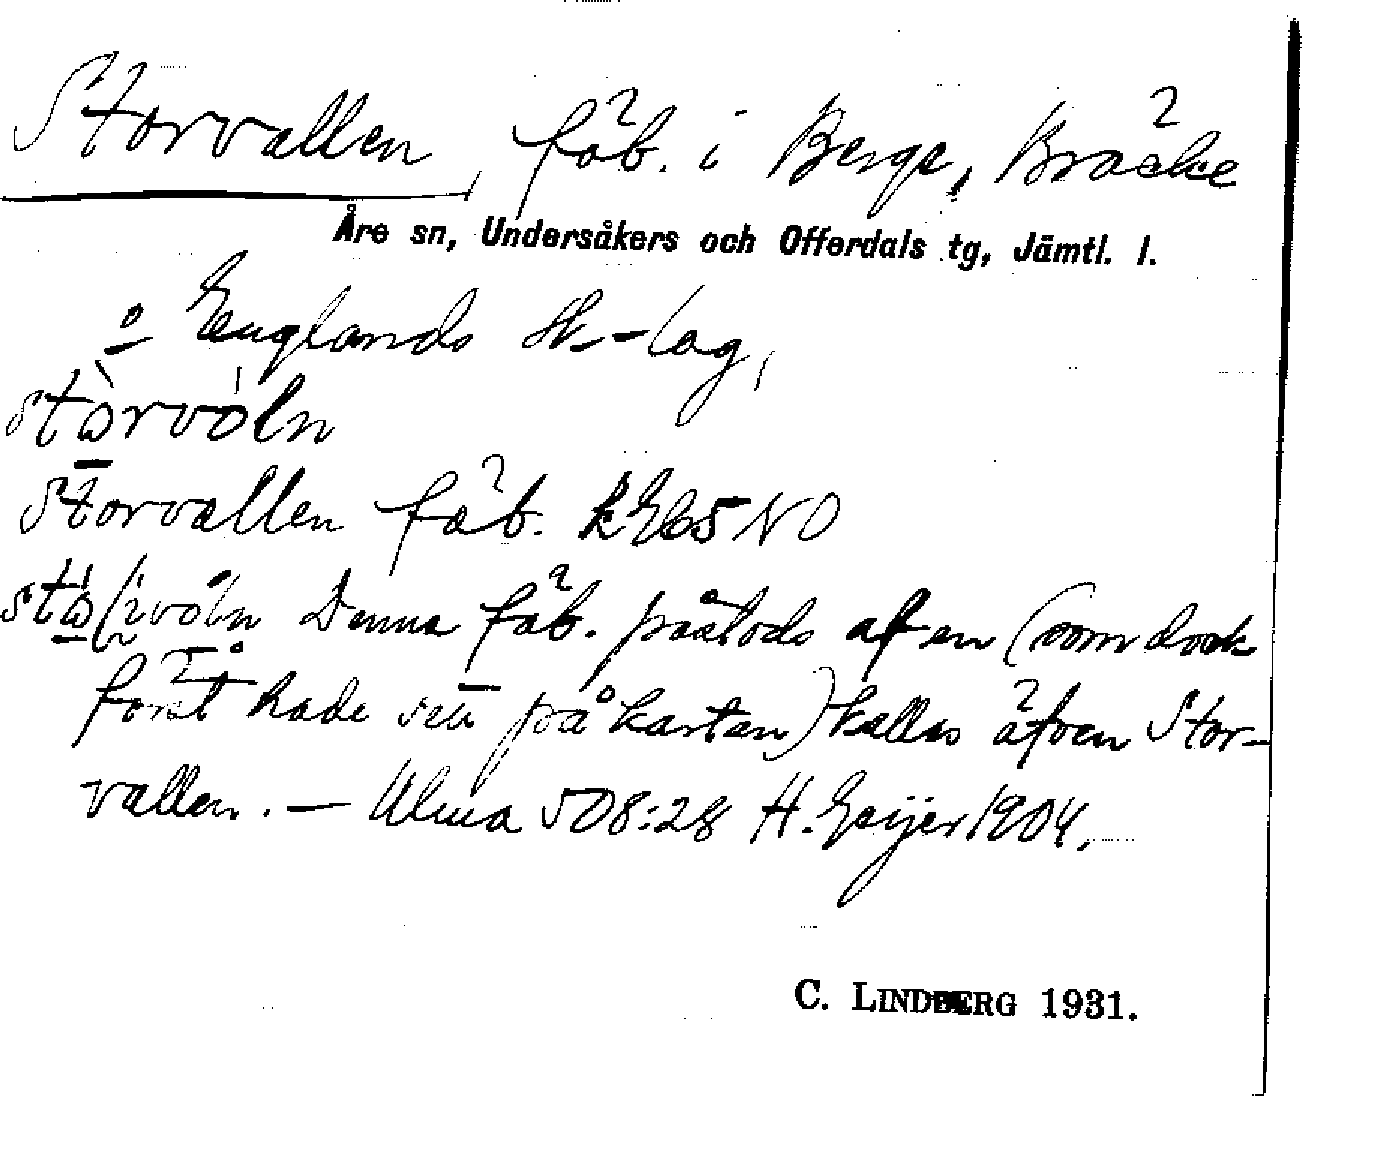 Storvallen, fäb. i Berge, Bräcke
Åre sn, Undersåkers och Offerdals tg, Jämtl. l.
o Englands sk.-lag,
stòrvóln
Storvallen fäb. kE65NO
Denna fäb. påstods af en (som dock
först hade sett på kartan) kallas äfven Stor-
vallen. — Ulma 508:28 H. Geijer 1904.
C. LINDBERG 1931.